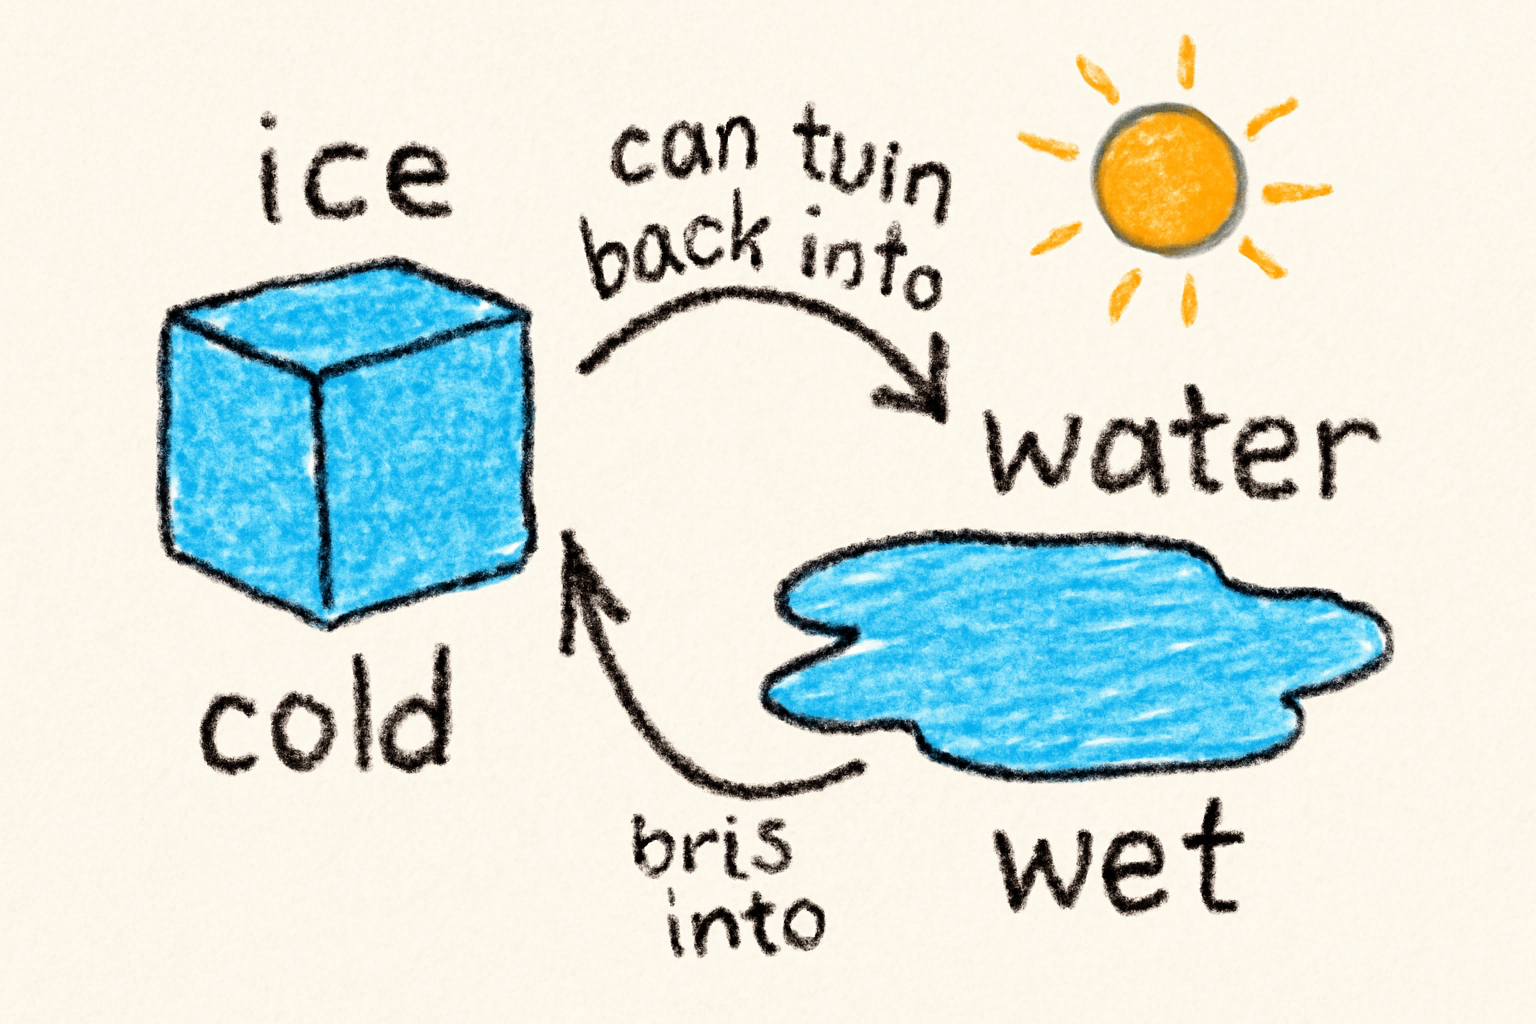 ice
can tuin
back into
water
cold
bris
into
wet